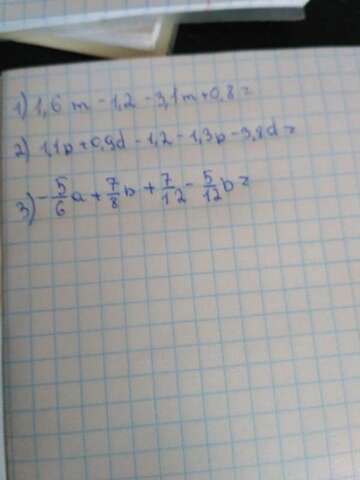 1) 1,6 m - 1,2 - 3,1m + 0,8 =
2) 1,1b + 0,9d - 1,2 - 1,3b - 3,8d =
3) - 5/6 a + 7/8 b + 7/12 - 5/12 b =